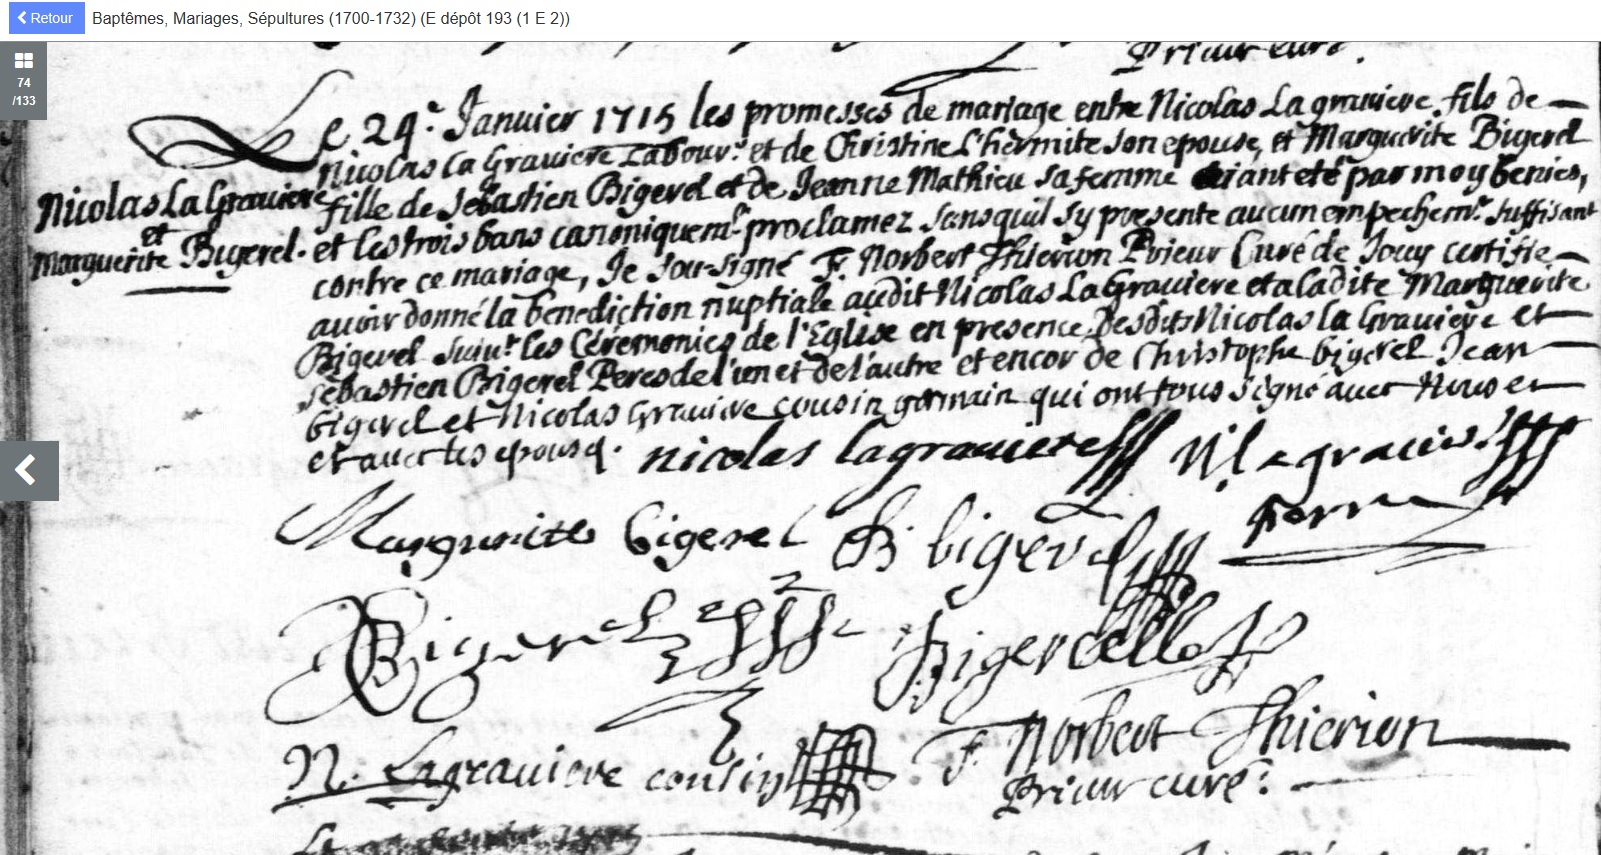 Retour
Baptêmes, Mariages, Sépultures (1700-1732) (E dépôt 193 (1 E 2))
74
/133
Prieur curé.
Le 24.e Janvier 1715 les promesses de mariage entre Nicolas La graviere fils de
Nicolas la Graviere Labour.r et de Christine l'hermite son epouse, et Marguerite Bigerel
fille de Sebastien Bigerel et de Jeanne Mathieu sa femme aiant eté par moy benies,
et les trois bans canoniquem.t proclamez sans quil s'y presente aucun empechem.t suffisant
contre ce mariage, Je sou-signé F. Norbert Thierion Prieur Curé de Jouy certifie
avoir donné la benediction nuptiale audit Nicolas La Graviere et a ladite Marguerite
Bigerel suiv.t les Céremonies de l'Eglise en presence desdits Nicolas la Graviere et
Sebastien Bigerel Peres de l'un et de l'autre et encor de Christophe bigerel Jean
bigerel et Nicolas Graviere cousin germain qui ont tous signé avec Nous et
et avec les epousés.
Nicolas La Graviere
et
Marguerite Bigerel.
nicolas lagraviere
N lagravier
Marguerite bigerel
B bigerel
Bigerel
Bigerelle
N. Lagraviere cousin
F. Norbert Thierion
Prieur curé.